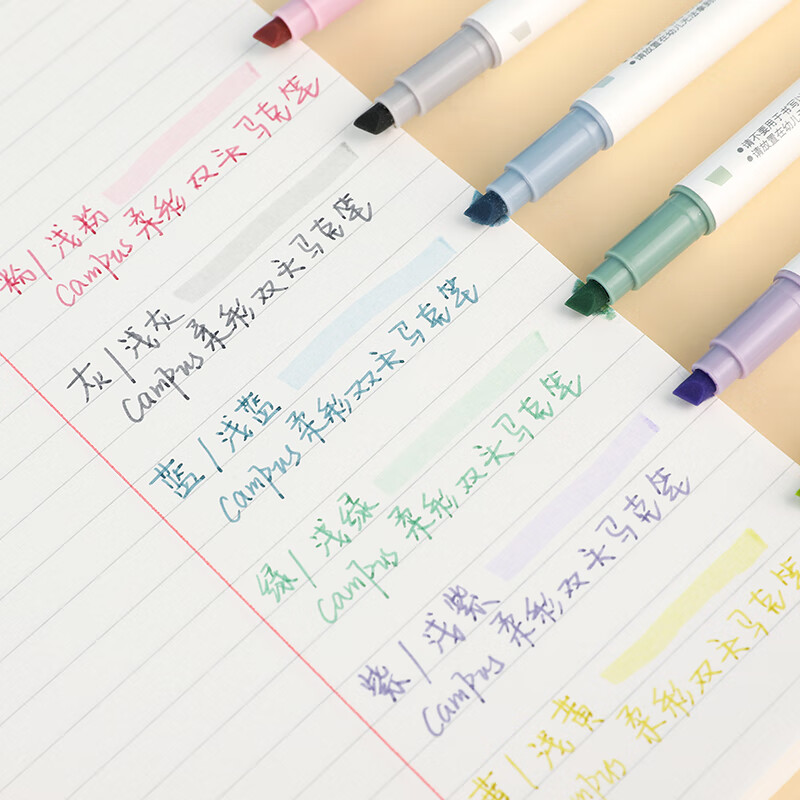 粉/浅粉
Campus 柔彩双头马克笔
灰/浅灰
Campus 柔彩双头马克笔
蓝/浅蓝
Campus 柔彩双头马克笔
绿/浅绿
Campus 柔彩双头马克笔
紫/浅紫
Campus 柔彩双头马克笔
黄/浅黄
Campus 柔彩双头马克笔
●请放置在幼儿无法拿到
●请不要用于书写
●请放置在幼儿